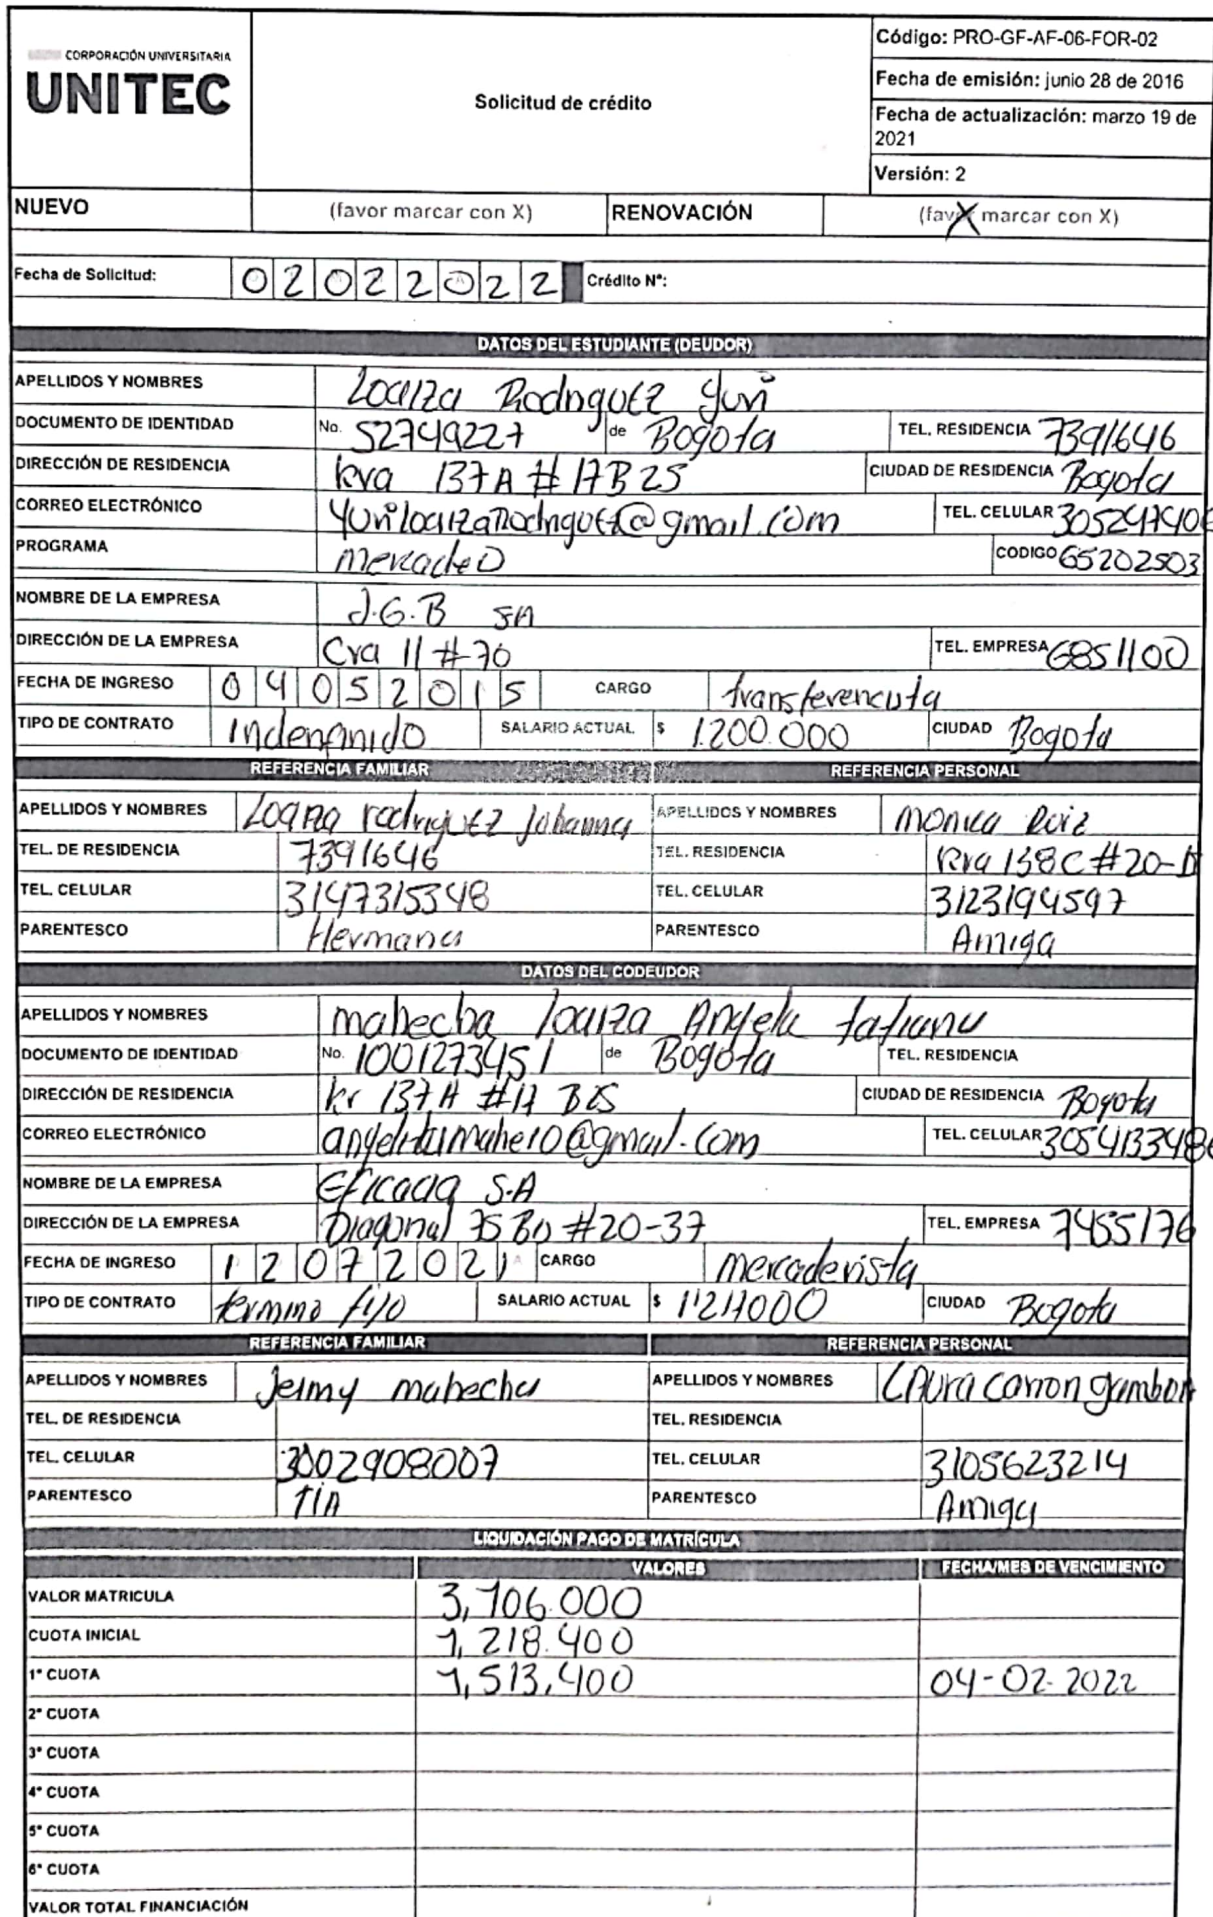 CORPORACIÓN UNIVERSITARIA
UNITEC
Solicitud de crédito
Código: PRO-GF-AF-06-FOR-02
Fecha de emisión: junio 28 de 2016
Fecha de actualización: marzo 19 de
2021
Versión: 2
NUEVO (favor marcar con X) RENOVACIÓN (favor marcar con X) X
Fecha de Solicitud: 02022022 Crédito N°:
DATOS DEL ESTUDIANTE (DEUDOR)
APELLIDOS Y NOMBRES Loaiza Rodriguez Yuri
DOCUMENTO DE IDENTIDAD No. 52749227 de Bogota TEL. RESIDENCIA 7391646
DIRECCIÓN DE RESIDENCIA kra 137A # 17B 25 CIUDAD DE RESIDENCIA Bogota
CORREO ELECTRÓNICO YuriloaizaRodriguez@gmail.com TEL. CELULAR
PROGRAMA mercadeo CODIGO 65202503
NOMBRE DE LA EMPRESA J.G.B SA
DIRECCIÓN DE LA EMPRESA Cra 11 #70 TEL. EMPRESA 6851100
FECHA DE INGRESO 04052015 CARGO transferencista
TIPO DE CONTRATO Indenfinido SALARIO ACTUAL $ 1.200.000 CIUDAD Bogota
REFERENCIA FAMILIAR REFERENCIA PERSONAL
APELLIDOS Y NOMBRES Loaiza rodriguez Johanna APELLIDOS Y NOMBRES Monica Ruiz
TEL. DE RESIDENCIA 7391646 TEL. RESIDENCIA kra 138C #20-
TEL. CELULAR 3147315348 TEL. CELULAR 3123194597
PARENTESCO Hermana PARENTESCO Amiga
DATOS DEL CODEUDOR
APELLIDOS Y NOMBRES mahecha loaiza Angela tatiana
DOCUMENTO DE IDENTIDAD No. 1001273451 de Bogota TEL. RESIDENCIA
DIRECCIÓN DE RESIDENCIA kr 137A #17 B25 CIUDAD DE RESIDENCIA Bogota
CORREO ELECTRÓNICO TEL. CELULAR 3054133486
NOMBRE DE LA EMPRESA Eficacia S.A
DIRECCIÓN DE LA EMPRESA Diagonal #20-37 TEL. EMPRESA 7455176
FECHA DE INGRESO 12072021 CARGO mercaderista
TIPO DE CONTRATO termino fijo SALARIO ACTUAL $ CIUDAD Bogota
REFERENCIA FAMILIAR REFERENCIA PERSONAL
APELLIDOS Y NOMBRES Jeimy mahecha APELLIDOS Y NOMBRES LAura
TEL. DE RESIDENCIA TEL. RESIDENCIA
TEL. CELULAR 3002908007 TEL. CELULAR 3105623214
PARENTESCO TIA PARENTESCO Amiga
LIQUIDACIÓN PAGO DE MATRÍCULA
VALORES FECHA/MES DE VENCIMIENTO
VALOR MATRICULA 3,706.000
CUOTA INICIAL 1,218.400
1° CUOTA 1,513,400 04-02-2022
2° CUOTA
3° CUOTA
4° CUOTA
5° CUOTA
6° CUOTA
VALOR TOTAL FINANCIACIÓN